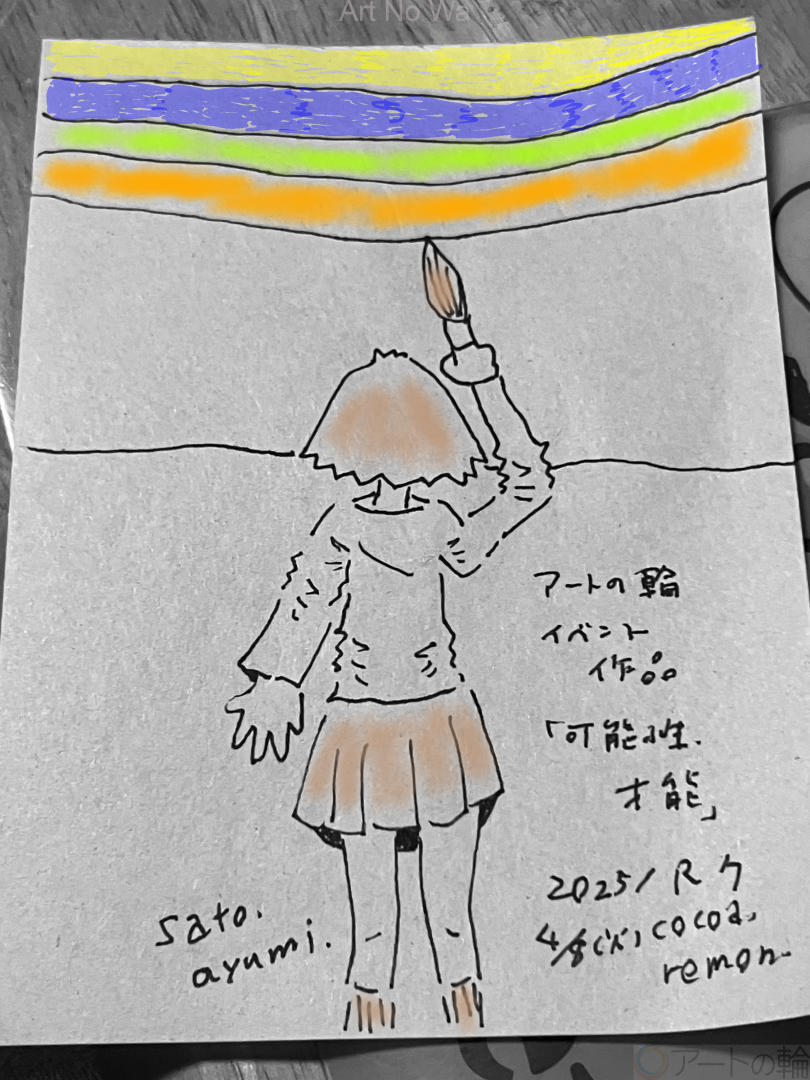 Art No Wa
アートの輪
イベント
作品
「可能性.
才能」
2025/R7
4/8(火)cocoa.
remon.
sato.
ayumi.
アートの輪